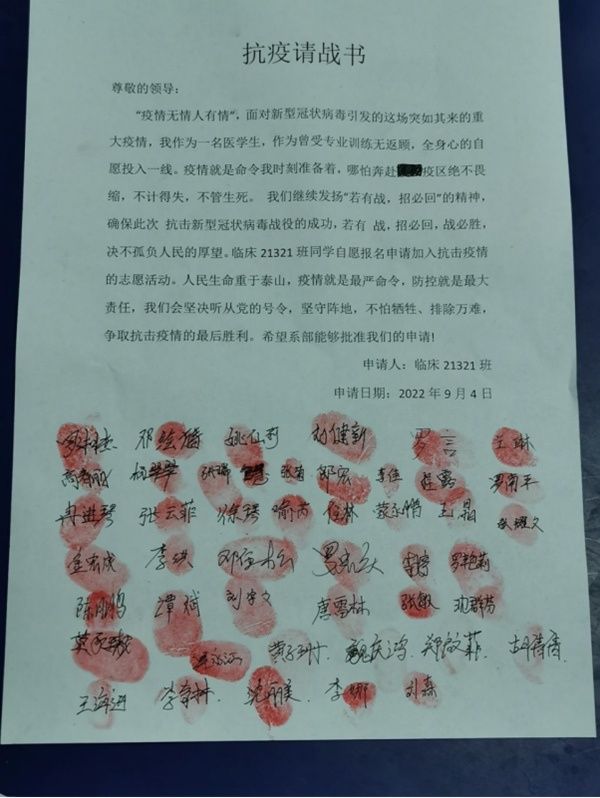 抗疫请战书
尊敬的领导：
“疫情无情人有情”，面对新型冠状病毒引发的这场突如其来的重
大疫情，我作为一名医学生，作为曾受专业训练无返顾，全身心的自
愿投入一线。疫情就是命令我时刻准备着，哪怕奔赴疫区绝不畏
缩，不计得失，不管生死。 我们继续发扬“若有战，招必回”的精神，
确保此次 抗击新型冠状病毒战役的成功，若有 战，招必回，战必胜，
决不孤负人民的厚望。临床 21321 班同学自愿报名申请加入抗击疫情
的志愿活动。人民生命重于泰山，疫情就是最严命令，防控就是最大
责任，我们会坚决听从党的号令，坚守阵地，不怕牺牲、排除万难，
争取抗击疫情的最后胜利。希望系部能够批准我们的申请!
申请人：临床 21321 班
申请日期：2022 年 9 月 4 日
姚仙莉 孙健新 罗言 王琳
张瑞 邹宏 李佳
冉进琴 张云菲 徐琴 喻芮 任林 王晶
李琪 李婷 罗艳莉
谭斌 刘宇文 唐雪林 张敏 沈群芬
郑啟菲
王海进 沈丽美 李娜 刘森